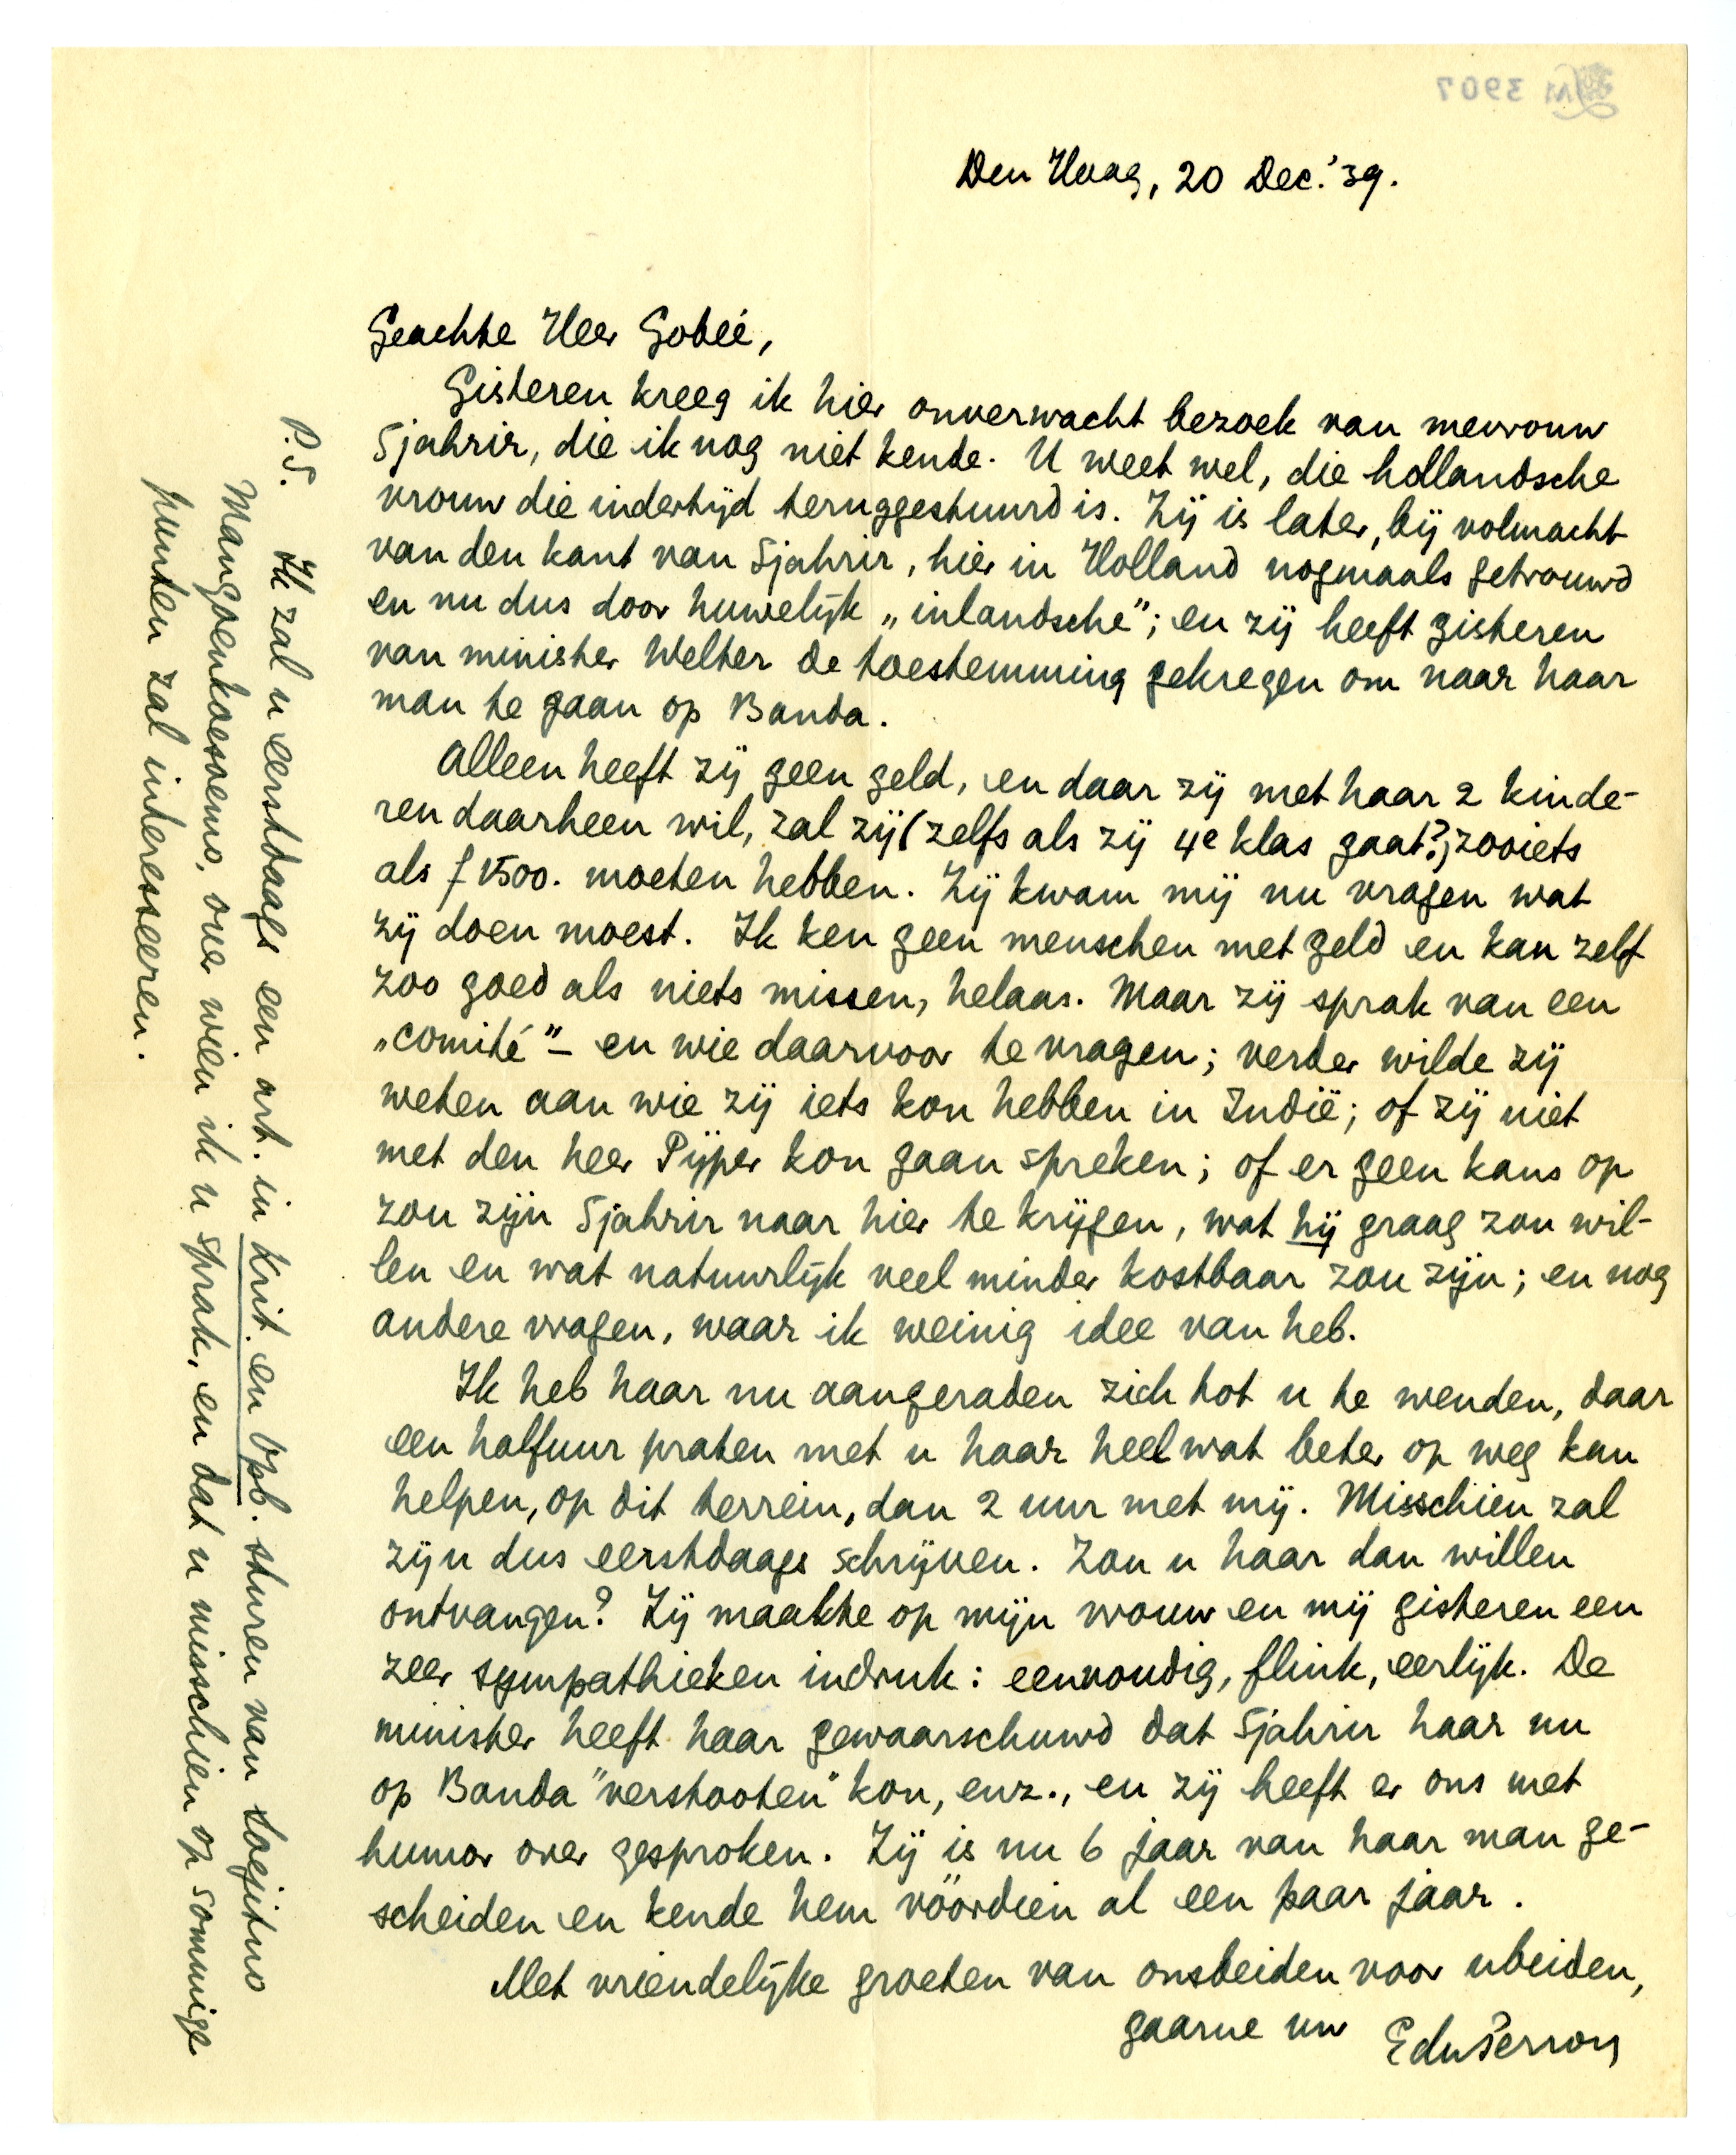 LM 3907
Den Haag, 20 Dec. '39.
Geachte Heer Gobée,
Gisteren kreeg ik hier onverwacht bezoek van mevrouw
Sjahrir, die ik nog niet kende. U weet wel, die hollandsche
vrouw die indertijd teruggestuurd is. Zij is later, bij volmacht
van den kant van Sjahrir, hier in Holland nogmaals getrouwd
en nu dus door huwelijk „inlandsche”; en zij heeft gisteren
van minister Welter de toestemming gekregen om naar haar
man te gaan op Banda.
Alleen heeft zij geen geld, en daar zij met haar 2 kinde-
ren daarheen wil, zal zij (zelfs als zij 4e klas gaat?) zooiets
als f 1500. moeten hebben. Zij kwam mij nu vragen wat
zij doen moest. Ik ken geen menschen met geld en kan zelf
zoo goed als niets missen, helaas. Maar zij sprak van een
„comité” – en wie daarvoor te vragen; verder wilde zij
weten aan wie zij iets kon hebben in Indië; of zij niet
met den heer Pijper kon gaan spreken; of er geen kans op
zou zijn Sjahrir naar hier te krijgen, wat hij graag zou wil-
len en wat natuurlijk veel minder kostbaar zou zijn; en nog
andere vragen, waar ik weinig idee van heb.
Ik heb haar nu aangeraden zich tot u te wenden, daar
een halfuur praten met u haar heel wat beter op weg kan
helpen, op dit terrein, dan 2 uur met mij. Misschien zal
zij u dus eerstdaags schrijven. Zou u haar dan willen
ontvangen? Zij maakte op mijn vrouw en mij gisteren een
zeer sympathieken indruk: eenvoudig, flink, eerlijk. De
minister heeft haar gewaarschuwd dat Sjahrir haar nu
op Banda "verstooten" kon, enz., en zij heeft er ons met
humor over gesproken. Zij is nu 6 jaar van haar man ge-
scheiden en kende hem vóórdien al een paar jaar.
Met vriendelijke groeten van onsbeiden voor ubeiden,
gaarne uw EduPerron
P.S. Ik zal u eerstdaags een art. in Krit. en Opb. sturen van Soejitno
Mangoenkoesoemo, over wien ik u sprak, en dat u misschien op sommige
punten zal interesseeren.